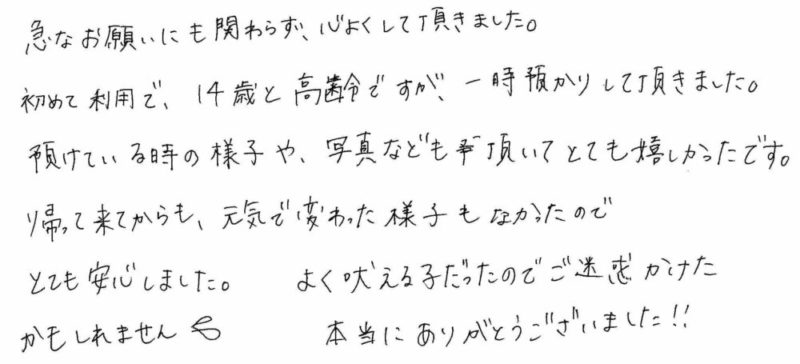 急なお願いにも関わらず、心よくして頂きました。
初めて利用で、14歳と高齢ですが、一時預かりして頂きました。
預けている時の様子や、写真なども頂いてとても嬉しかったです。
帰って来てからも、元気で変わった様子もなかったので
とても安心しました。 よく吠える子だったのでご迷惑かけた
かもしれません 本当にありがとうございました!!